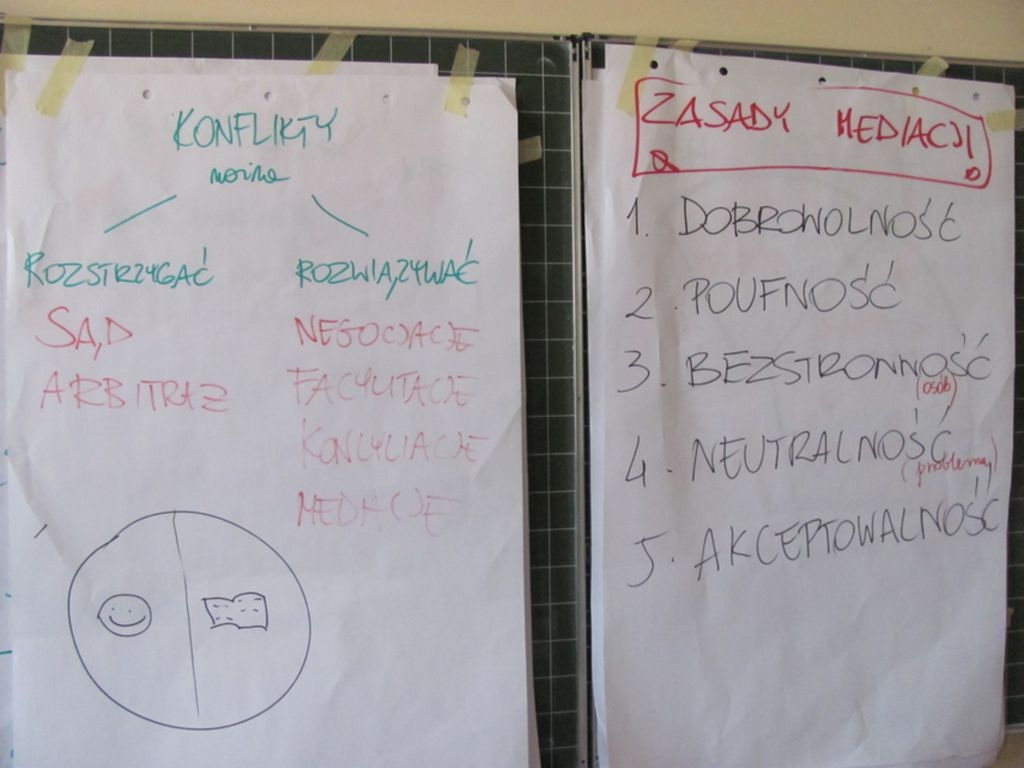 KONFLIKTY
można
ROZSTRZYGAĆ ROZWIĄZYWAĆ
SĄD NEGOCJACJE
ARBITRAŻ FACYLITACJE
KONCYLIACJE
MEDIACJE
ZASADY MEDIACJI
1. DOBROWOLNOŚĆ
2. POUFNOŚĆ
3. BEZSTRONNOŚĆ
(osób)
4. NEUTRALNOŚĆ
(problemy)
5. AKCEPTOWALNOŚĆ